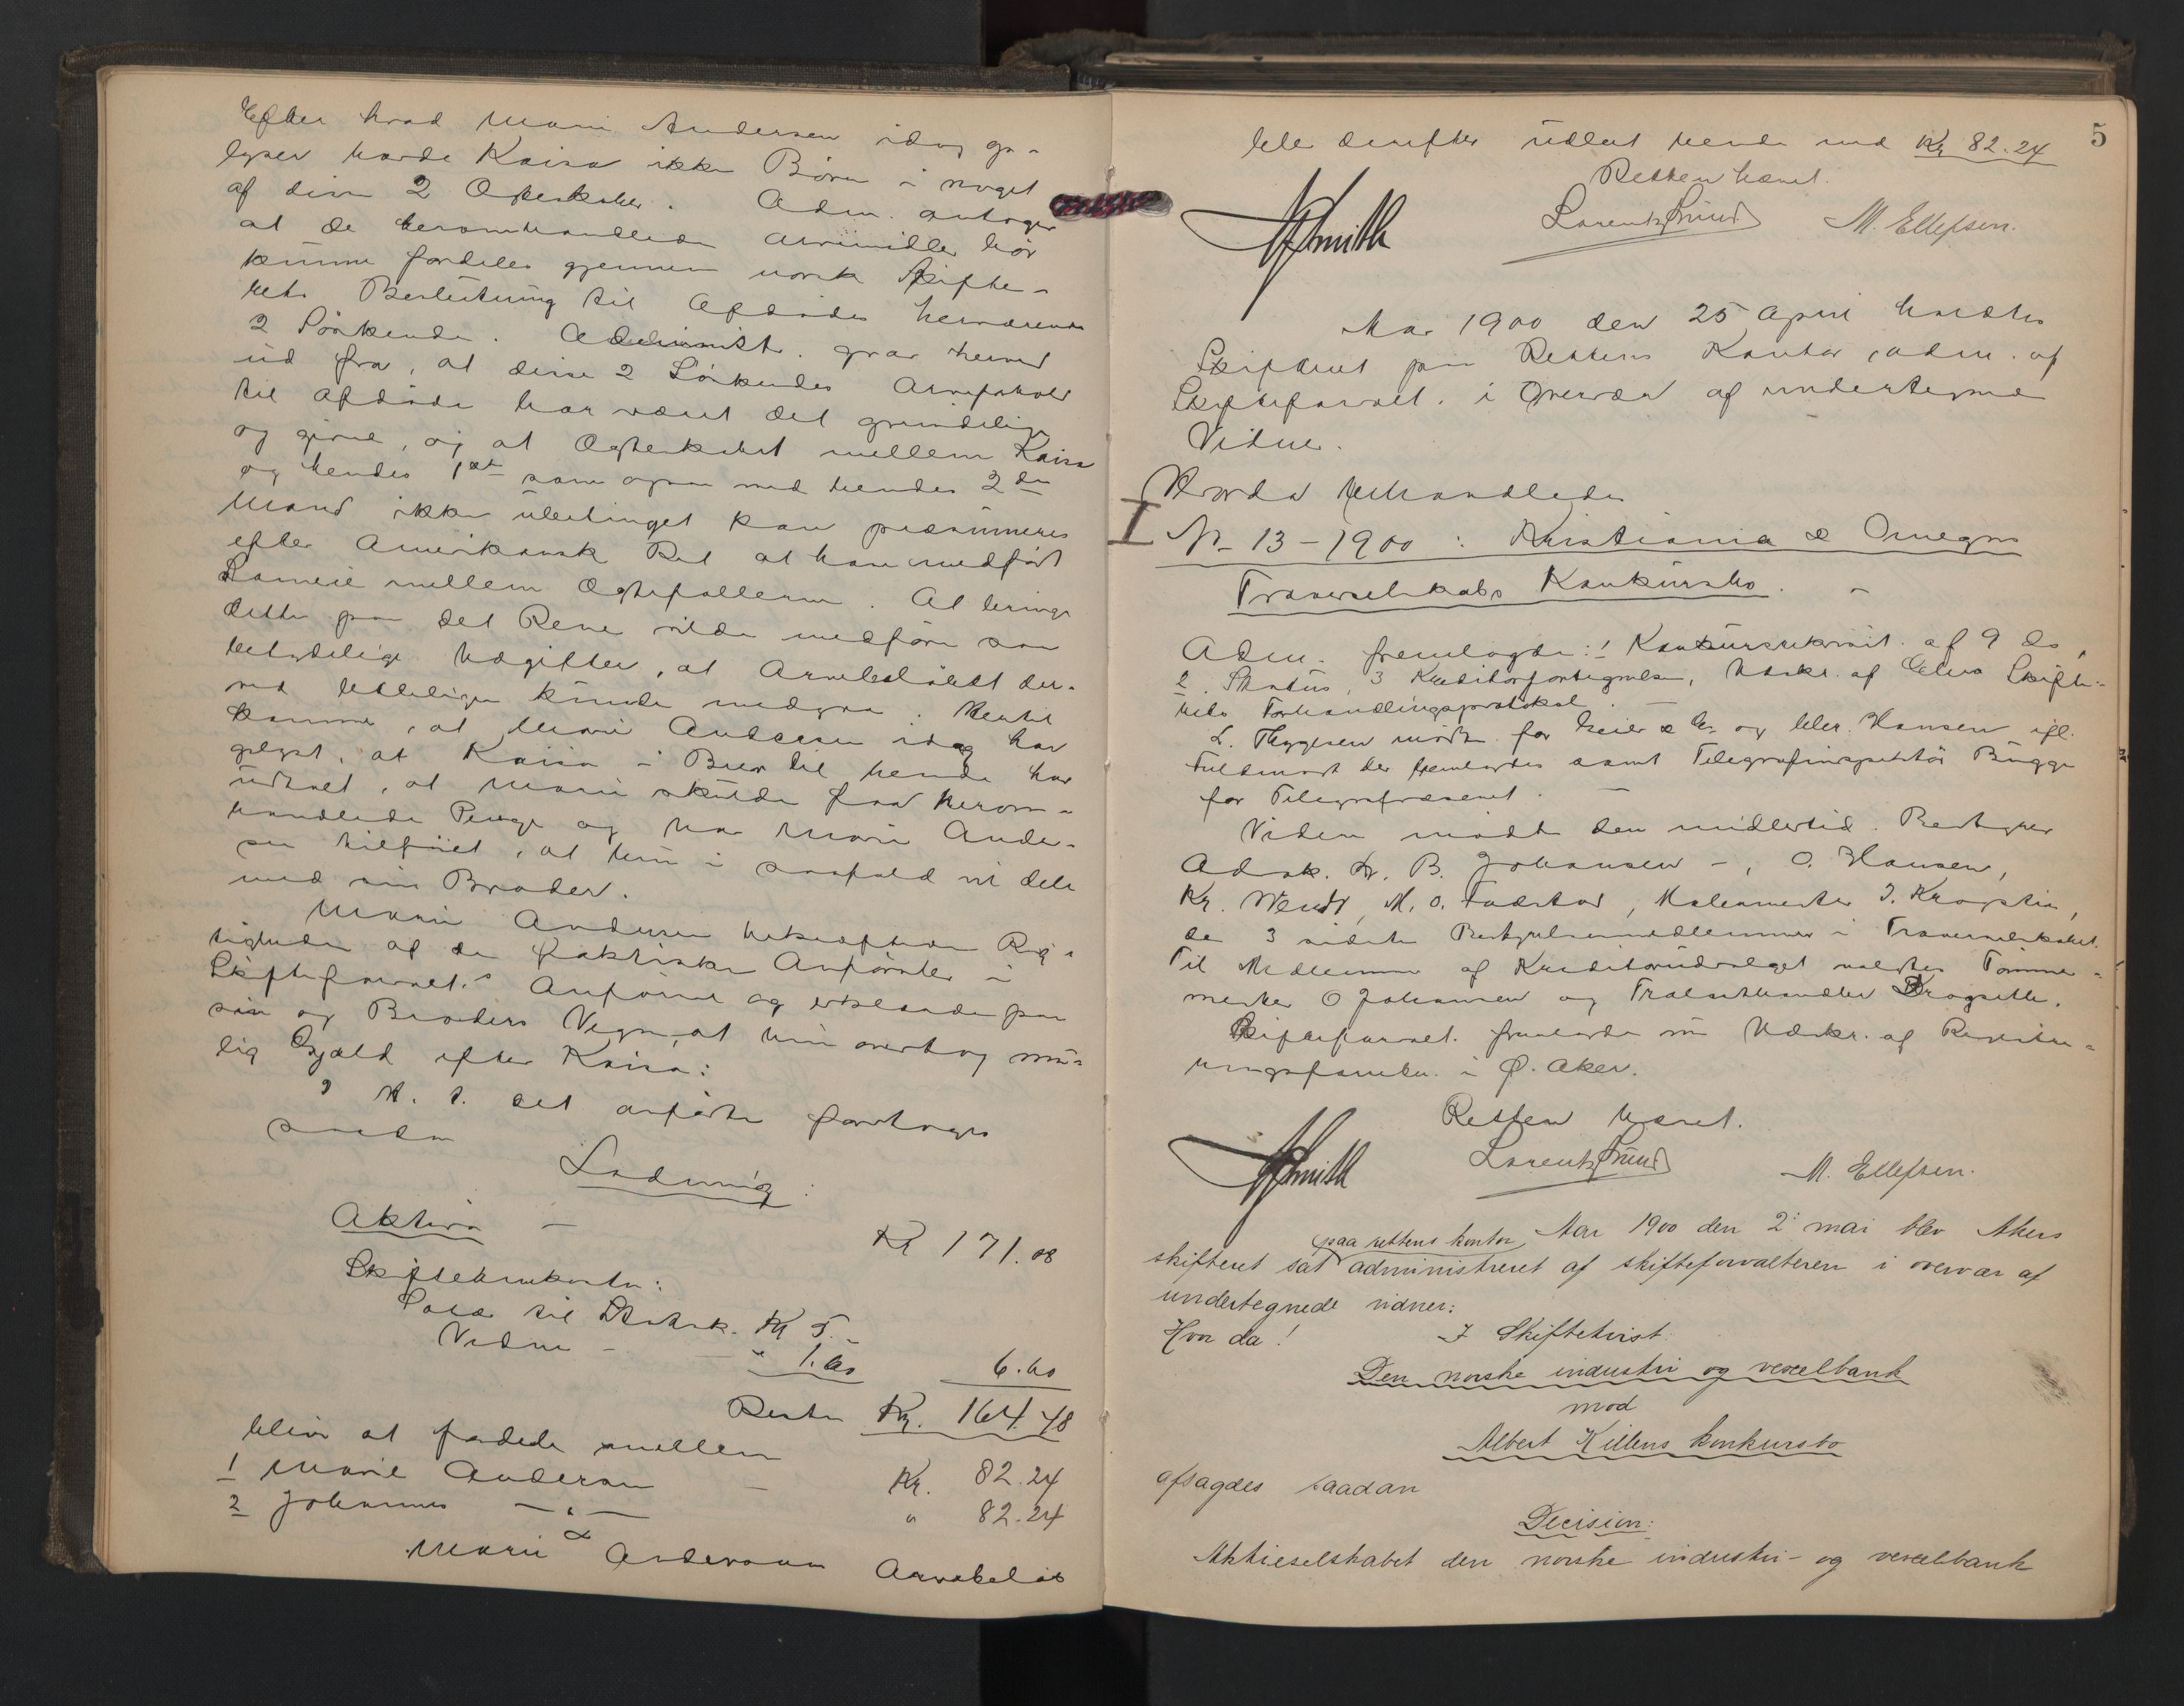 Efter hvad Marie Andersen idag op-
lyser havde Kaisa ikke Børn i noget
af disse 2 Ægteskaber. Adm. antager
at de heromhandlede Arvemidler bør
kunne fordeles gjennem norsk Skifte-
rets Beslutning til Afdødes herværende
2 Søskende. Administr. gaar herved
ud fra, at disse 2 Søskendes Arveforhold
til Afdøde har været det grundelige
og givne, og at Ægteskabet mellem Kaisa
og hendes 1ste som ogsaa med hendes 2den
Mand ikke ubetinget kan præsumeres
efter Amerikansk Ret at have medført
Sameie mellem Ægtefællerne. At bringe
dette paa det Rene vilde medføre saa
betydelige Udgifter, at Arvebeløbet der-
ved letteligen kunde medgaa. Hertil
kommer, at Marie Andersen idag har
oplyst, at Kaisa i Brev til hende har
udtalt, at Marie skulde faa herom-
handlede Penge og har Marie Ander-
sen tilføiet, at hun i saafald vil dele
med sin Broder.
Marie Andersen bekræftede Rig-
tigheden af de faktiske Anførsler i
Skifteforvalt.s Anførsel og erklærede paa
sin og Broders Vegne, at hun overtog mu-
lig Gjæld efter Kaisa:
I H. t. det anførte foretoges
saadan
Lodning:
Aktiva - Kr 171.08
Skifteomkostn:
Salær til Kr 5.-
Vidne - " 1.60 6.60
Rester Kr. 164.48
bliver at fordele mellem
1 Marie Andersen - Kr. 82.24
2 Johannes -"- " 82.24
Marie Andersen Arvebeløb
5
blev derefter udlagt hende med Kr 82.24
Retten hævet.
Smith Lorentz Lund M. Ellefsen.
Aar 1900 den 25 April holdtes
Skifteret paa Rettens Kontor, adm. af
Skifteforvalt. i Overvær af undertegnede
Vidner.
Hvorda behandledes
I No 13-1900: Kristiania & Omegns
Traverselskabs Konkursbo. -
Adm. fremlagde: 1 Konkursrekvisit. af 9 ds,
2. Status, 3 Kreditorfortegnelse, Udskr. af Skifte-
rets Forhandlingsprotokol. -
L. Thygesen mødte for & Co og Hansen ifl.
Fuldmagt der fremlagdes samt Telegrafinspektør Bugge
for Telegrafvæsenet. -
Viden mødte den midlertid. Bestyrer
Advok. B. Johansen -, O. Hansen,
Kr. Wendt, M. O. Malermester J.
de 3 sidste Bestyrelsesmedlemmer i Traverselskabet.
Til Medlemmer af Kreditorudvalget valgtes Tømmer-
mester O Johansen og Trælasthandler
Skifteforvalt. fremlagde en Udskr. af Registre-
ringsforretn. i Ø. Aker.
Retten hævet.
Smith Lorentz Lund M. Ellefsen.
Aar 1900 den 2: mai blev Akers
skifteret sat paa rettens kontor administreret af skifteforvalteren i overvær af
undertegnede vidner:
Hvor da! I Skiftetvist:
Den norske industri og vexelbank
mod
Albert Killens konkursbo
afsagdes saadan
Decision:
Aktieselskabet den norske industri- og vexelbank